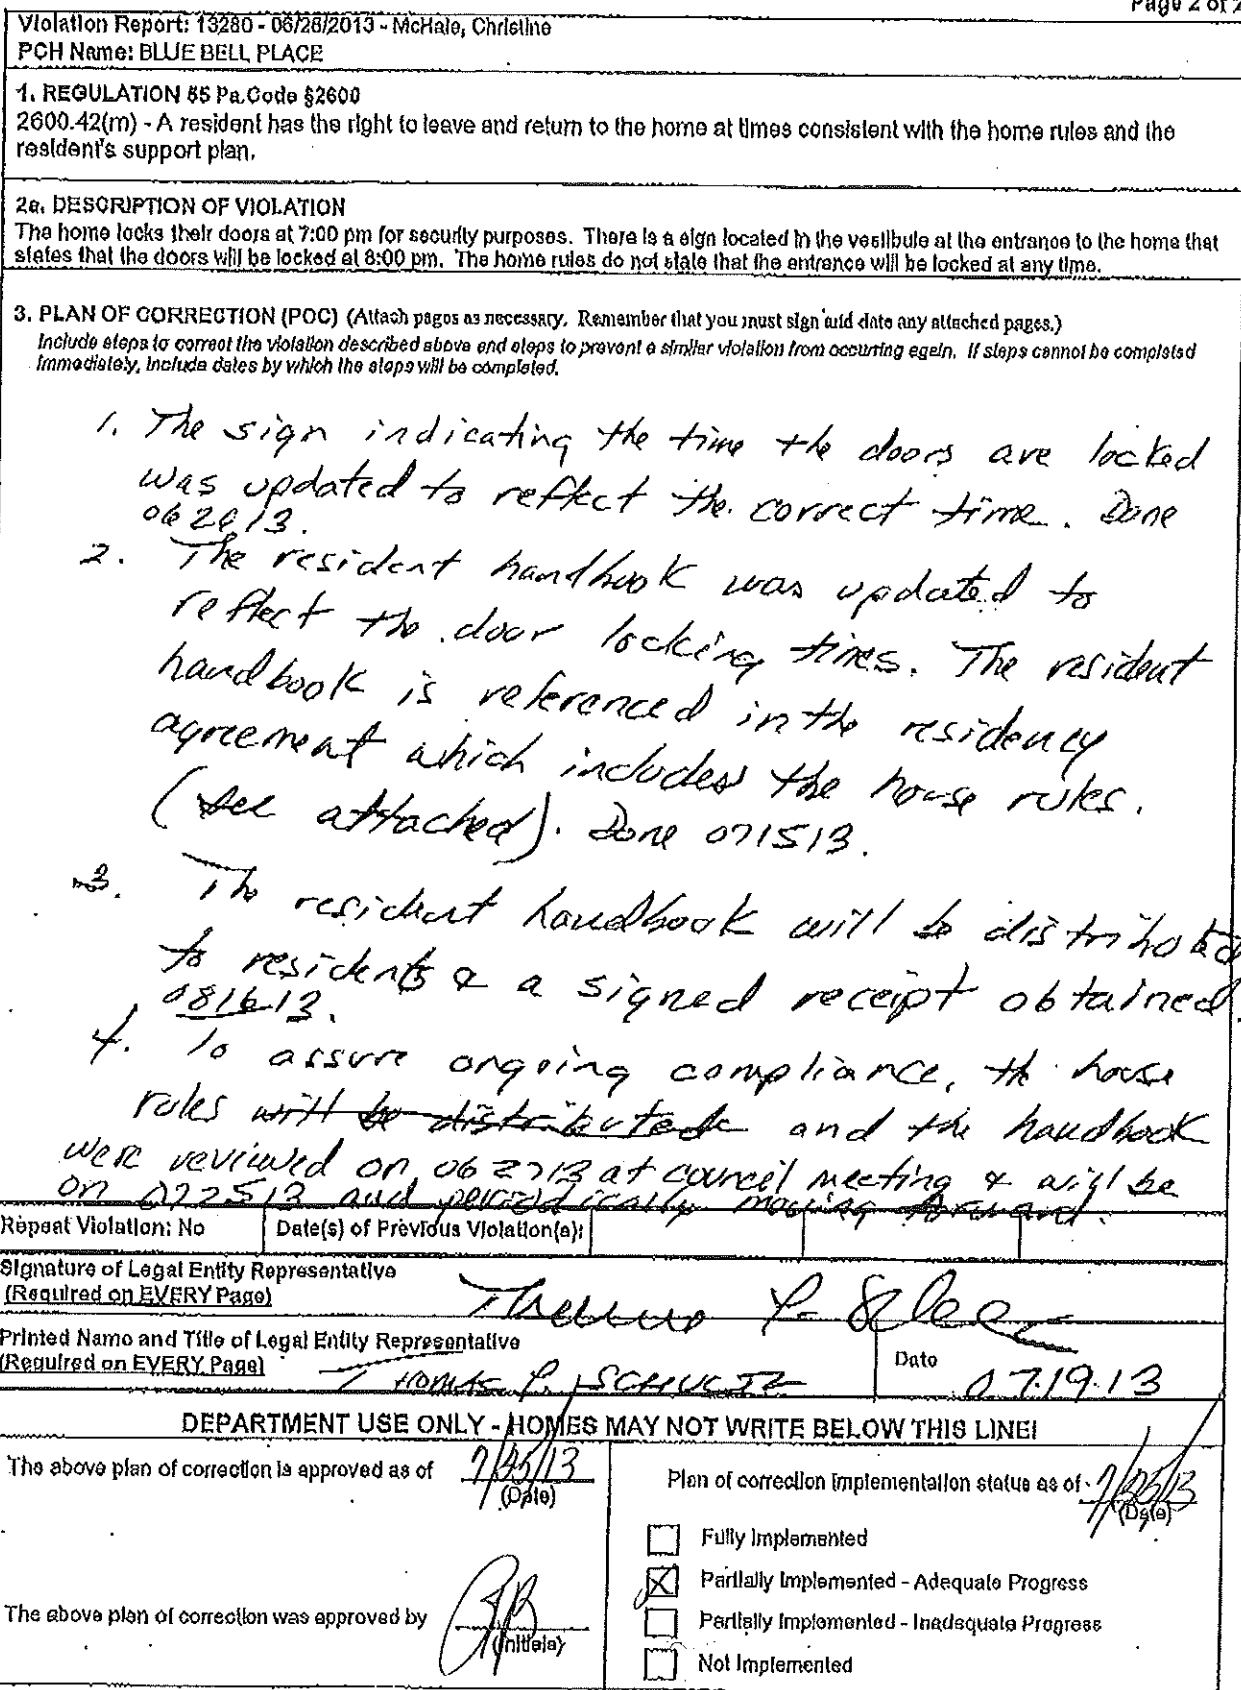 Page 2 of 2
Violation Report: 13280 - 06/28/2013 - McHale, Christine
PCH Name: BLUE BELL PLACE
1. REGULATION 55 Pa.Code §2600
2600.42(m) - A resident has the right to leave and return to the home at times consistent with the home rules and the
resident's support plan.
2a. DESCRIPTION OF VIOLATION
The home locks their doors at 7:00 pm for security purposes. There is a sign located in the vestibule at the entrance to the home that
states that the doors will be locked at 8:00 pm. The home rules do not state that the entrance will be locked at any time.
3. PLAN OF CORRECTION (POC) (Attach pages as necessary. Remember that you must sign and date any attached pages.)
Include steps to correct the violation described above and steps to prevent a similar violation from occurring again. If steps cannot be completed
immediately, include dates by which the steps will be completed.
1. The sign indicating the time the doors are locked
was updated to reflect the correct time. Done
2. The resident handbook was updated to
reflect the door locking times. The resident
handbook is referenced in the residency
agreement which includes the house rules.
(see attached). Done 071513.
3. The resident handbook will be distributed
to residents & a signed receipt obtained.
081613.
4. To assure ongoing compliance, the house
rules will be distributed and the handbook
were reviewed on 062713 at council meeting & will be
on 072513 and periodically moving forward.
Repeat Violation: No Date(s) of Previous Violation(s):
Signature of Legal Entity Representative
(Required on EVERY Page)
Printed Name and Title of Legal Entity Representative
(Required on EVERY Page) THOMAS P. SCHULTZ Date 07.19.13
DEPARTMENT USE ONLY - HOMES MAY NOT WRITE BELOW THIS LINE!
The above plan of correction is approved as of 7/25/13
(Date)
Plan of correction implementation status as of 7/25/13
(Date)
Fully Implemented
Partially Implemented - Adequate Progress
Partially Implemented - Inadequate Progress
Not Implemented
The above plan of correction was approved by
(Initials)